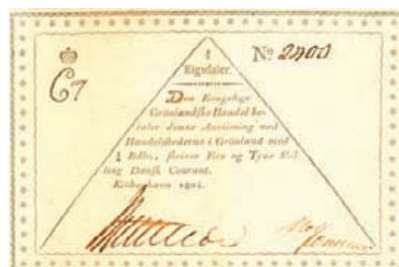 C7
Nº 2400
Rigsdaler.
Den Kongelige
Grönlandske Handel be-
taler denne Anviisning ved
Handelstederne i Grönland med
Rdlr., skriver Fire og Tyve Skil-
ling Dansk Courant.
Kiöbenhavn